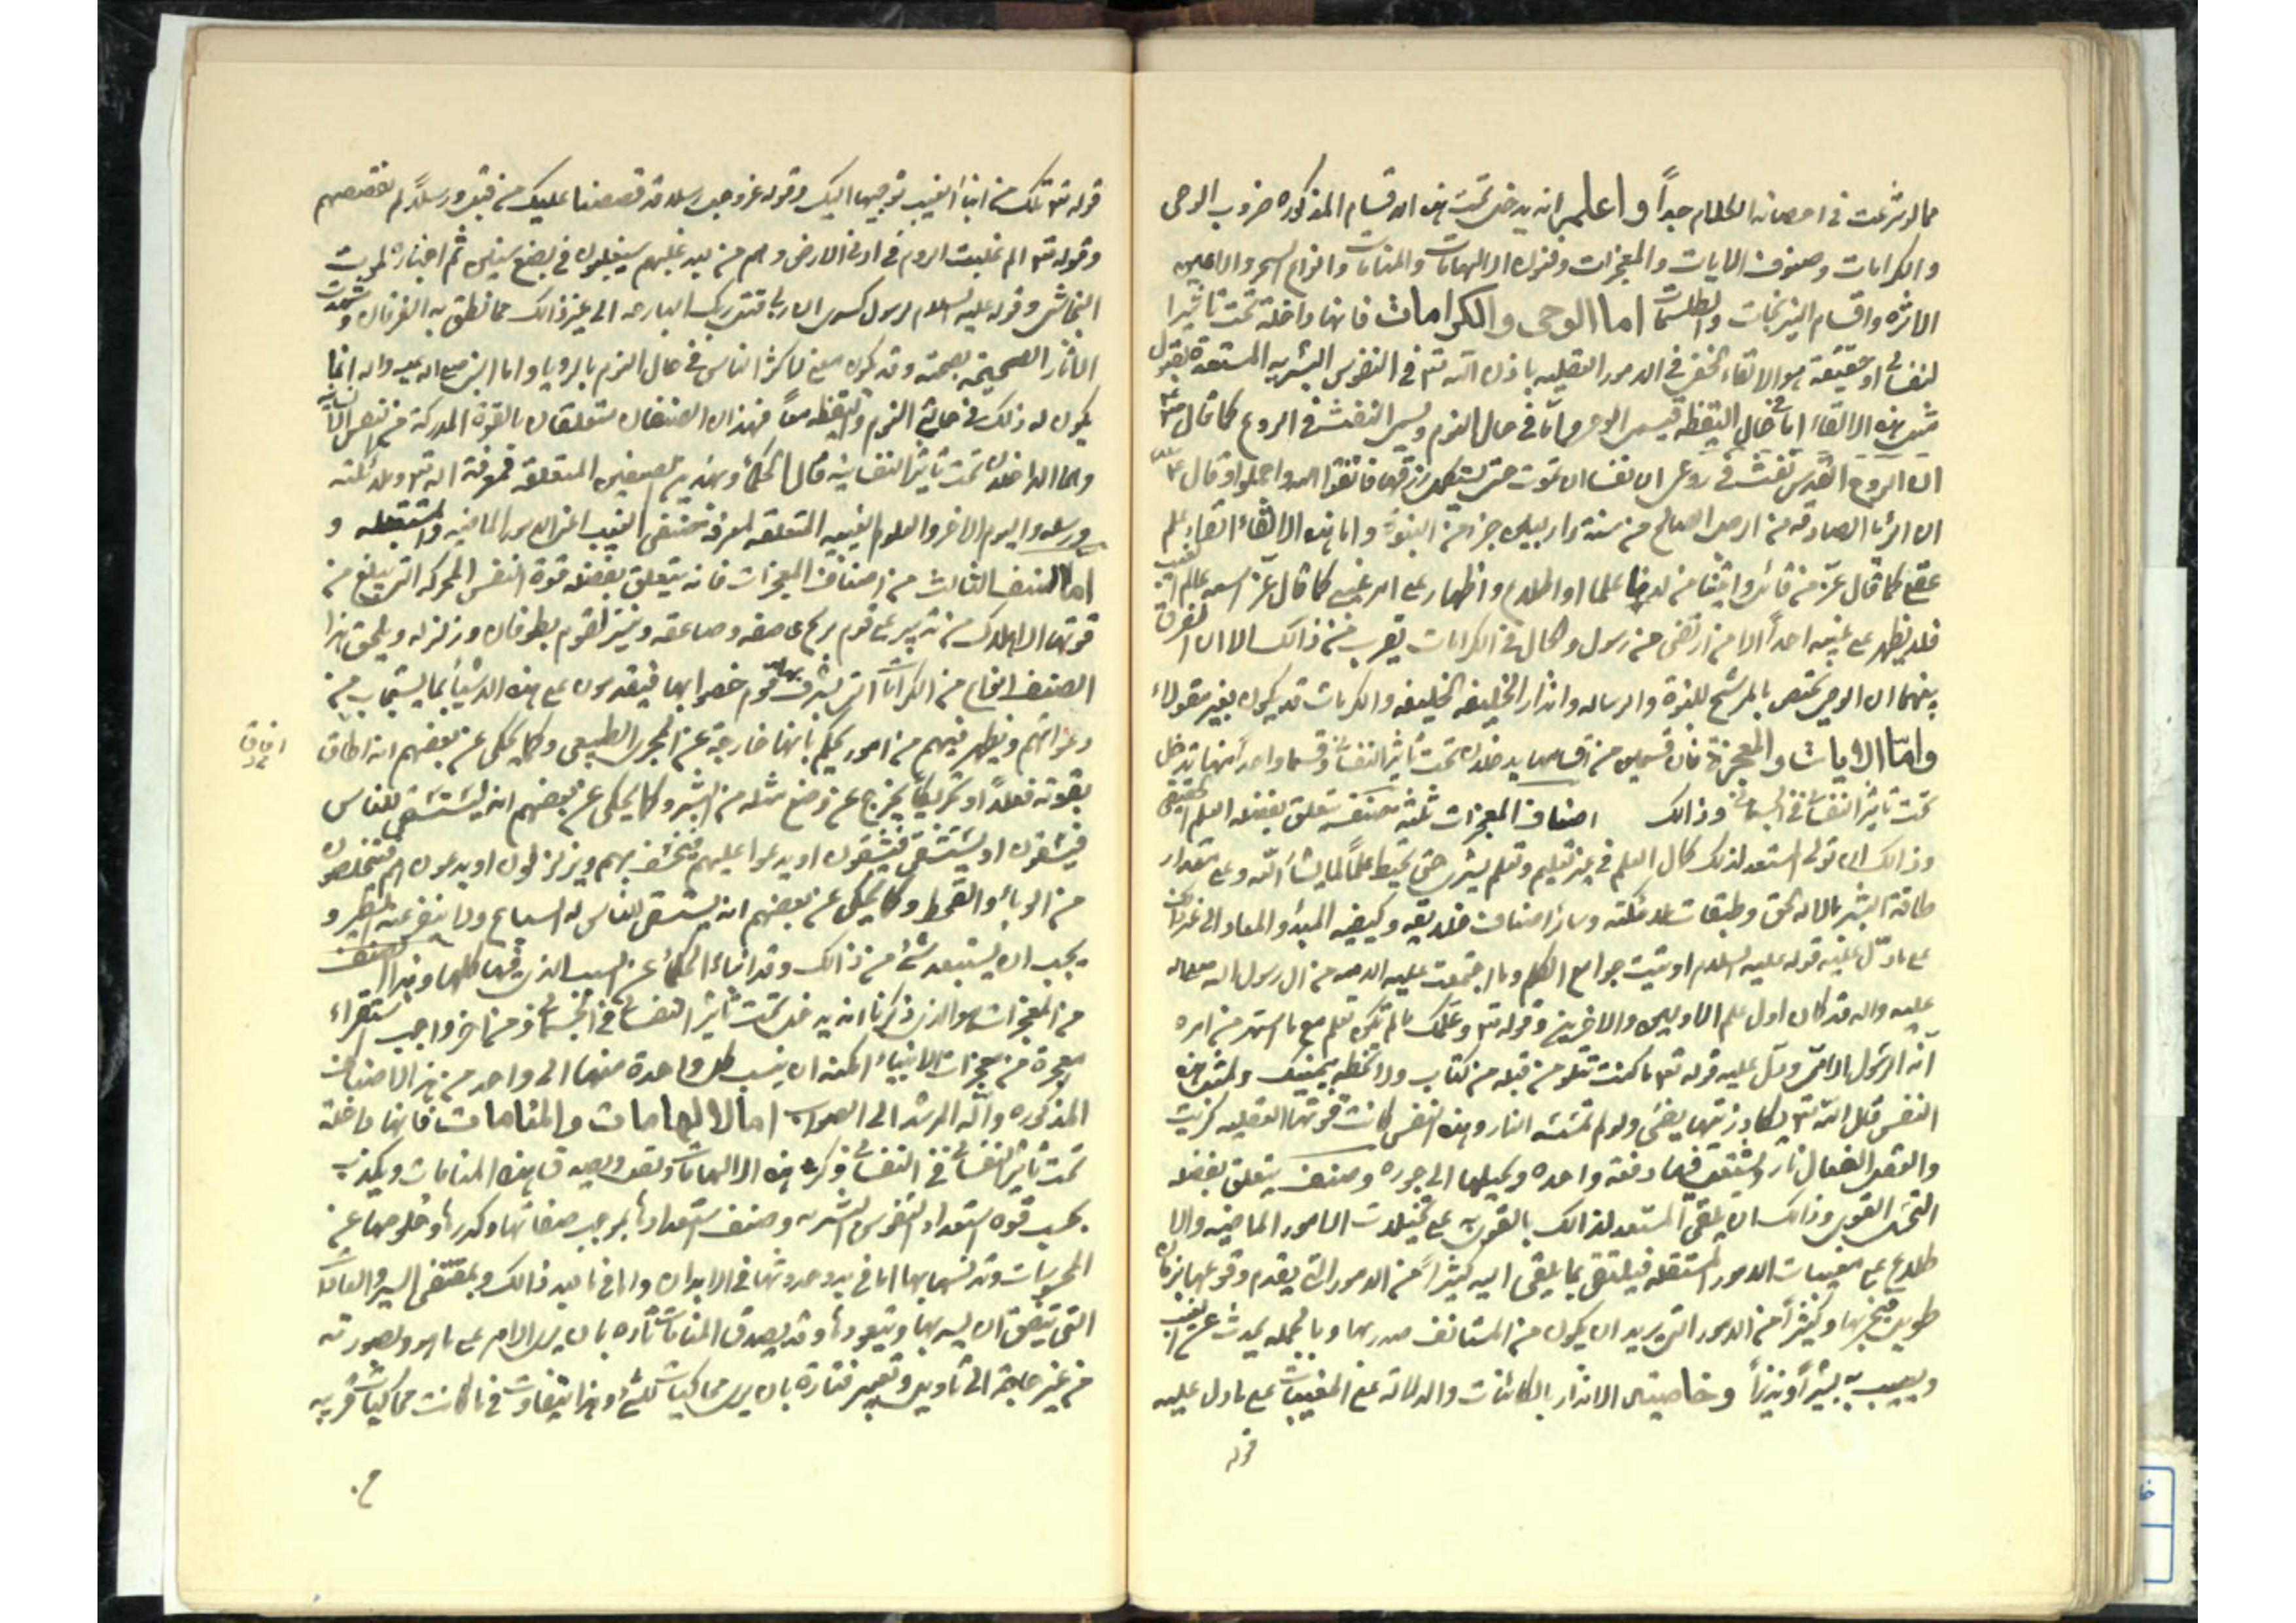 مما لو شرعت في احصائه الكلام جداً واعلم انه يدخل تحت هذه الاقسام المذكوره ضروب الوحى
والكرامات وصنوف الايات والمعجزات وفنون الالهامات والمنامات وانواع السحر والاعين
الاثره واقسام النيرنجات والطلسمات اما الوحى والكرامات فانها داخلة تحت تأثير ا
لنفسانى اذ حقيقته هو الالقاء الخفى فى الامور العقليه باذن الله تع فى النفوس البشريه المستعدة لقبول
مثل هذه الالقاء اما فى حال اليقظه فيسمى الوحى واما فى حال النوم ويسمى النفث فى الروع كما قال
ان الروح القدس نفث فى روعى ان نفسا لن تموت حتى تستكمل رزقها فاتقوا الله واجملوا وقال
ان الرؤيا الصادقه من الرجل الصالح من ستة واربعين جزء من النبوة واما هذه الالقاء القاء علم
عقلى كما قال عز من قائل واتيناه من لدنا علما او اطلاع واظهار على امر غيبى كما قال عز اسمه عالم الغيب
فلا يظهر على غيبه احداً الا من ارتضى من رسول وكمال فى الكرامات يقرب من ذالك الا ان الفرق
بينهما ان الوحى يختص بالمرشح للنبوة والرساله وانذار الخليفه الخليفه والكرمات قد يكون بغير مقولاء
واما الايات والمعجزة فان قسمين من اقسامها يدخلان تحت تأثير النفسانى وقسما واحد منها تدخل
تحت تأثير النفسانى فى الجسمانى وذالك اصناف المعجزات ثلثه صنف يتعلق بفضله العلم الحقيقى
وذالك ان تولى المستعد لذلك كمال العلم فى غير تعليم وتعلم بشرى حتى يحيط علماً لما يشاء الله وعلى مقدار
طاقة البشر بالاله الحق وطبقات ملائكته وسائر اصناف خلايقه وكيفيه المبدء والمعاد الى غير ذالك
على ما دل عليه قوله عليه السلام اوتيت جوامع الكلم وما اجتمعت عليه الامه من ال رسول الله صلى الله
عليه واله قد كان اول علم الاولين والاخرين وقوله تع وعلمك ما لم تكن تعلم مع ما اشتهر من امره
انه الرسول الامى ودل عليه قوله تع ما كنت تتلو من قبله من كتاب ولا تخطه بيمينك ولمثل هذه
النفس قال الله تع يكاد زيتها يضئ ولو لم تمسسه النار وهذه النفس كانت قوتها العقليه كبريت
والعقل الفعال نار فيشتعل فيها دفعة واحده ويحيلها الى جوره وصنف يتعلق بفضله
التخيل القوى وذالك ان يلقى المستعد لذالك بالقوى به على تخيلات الامور الماضيه والا
طلاع على مغيبات الامور المستقبله فيلقى بما يلقى اليه كثيراً من الامور التى يقدم وقوعها بزمان
طويل فيخبر بها وكثيراً من الامور التى يريد ان يكون من المستانف مدربها وبالجمله يحدث عن الغيب
ويصيب به بشيراً ونذيراً وخاصيته الانذار بالكائنات والدلالة على المغيبات على ما دل عليه
قوله
قوله تع تلك من انباء الغيب نوحيها اليك وقوله عز وجل رسلا قد قصصنا عليك من قبل ورسلاً لم نقصصهم
وقوله تع الم غلبت الروم فى ادنى الارض وهم من بعد غلبهم سيغلبون فى بضع سنين ثم اخباره لموت
النجاشى وقوله عليه السلام لرسول كسرى ان ربى قتل ربك البارحه الى غير ذالك مما نطق به الفرقان وشهدت
الاثار الصحيحة بصحته وقد يكون معنى لاكثر الناس فى حال النوم بالرويا واما النبى صلى اله عليه واله انما
يكون له ذلك فى حالتى النوم واليقظه معاً فهذان الصنفان متعلقان بالقوة المدركة من النفس الانسانيه
وهما الداخلان تحت تأثير النفسانيه قال الحكماء وهذين الصنفين المتعلقه لمعرفة اله تع وملائكته
ورسله واليوم الاخر والعلوم الغيبيه المتعلقه لمعرفه الغيب اعنى الامور الماضيه والمستقبله و
اما الصنف الثالث من اصناف المعجزات فانه يتعلق بفضله قوة النفس المحركه التى تبلغ من
قوتها الى الاهلاك من تدمير على قوم بريح عاصفه وصاعقه ويتبر لقوم بطوفان وزلزله ويلحق بهذا
الصنف انواع من الكرامات التى يشرف بها قوم خصوا بها فيقدرون على هذه الاشياء بما يستجاب من
دعواتهم ويظهر فيهم من امور يحكم بانها خارجه عن المجرى الطبيعى وكما يحكى عن بعضهم انه اطاق
اطاق
بقوته فعلاً او تحريكاً يخرج عن وضع مثله من البشر وكما يحكى عن بعضهم انه يستسقى للناس
فيسقون او يستشفى فيشفون او يدعوا عليهم فيخسف بهم ويزلزلون او يدعون لهم فيتخلصون
من الوباء والقحط وكما يحكى عن بعضهم انه يستسقى للناس له السباع ولا ينفر عنه الطير و
يجب ان يستبعد شئ من ذالك وقد انباء الحكماء عن السبب الذى فيها كلها وهذا الصنف
من المعجزات هو الذى ذكرنا انه يدخل تحت تأثير النفسانى فى الجسمانى ومن اخر واجب استقراء
معجزة من معجزات الانبياء امكنه ان ينسب كل واحدة منها الى واحد من هذه الاصناف
المذكوره والله المرشد الى الصواب اما الالهامات والمنامات فانها داخلة
تحت تأثير النفسانى فى النفسانى وكثره هذه الالهامات وتقوى ويصدق هذه المنامات ويكذب
بحسب قوه استعداد النفوس البشريه وضعف استعدادها بموجب صفائها وكدرها وخلوصها عن
المحسوسات وتدنسها بها اما فى بدو حدوثها فى الابدان واما فى ما بعد ذالك وبمقتضى السير والعادات
التى يتفق ان يسير بها ويتعودها وقد يصدق المنامات تاره بان يرى الامر على ما هو وبصورته
من غير حاجة الى تأويل وتعبير فتارة بان يرى محاكيات للشئ وهذا يتفاوت فى ما كانت محاكيات قريبه